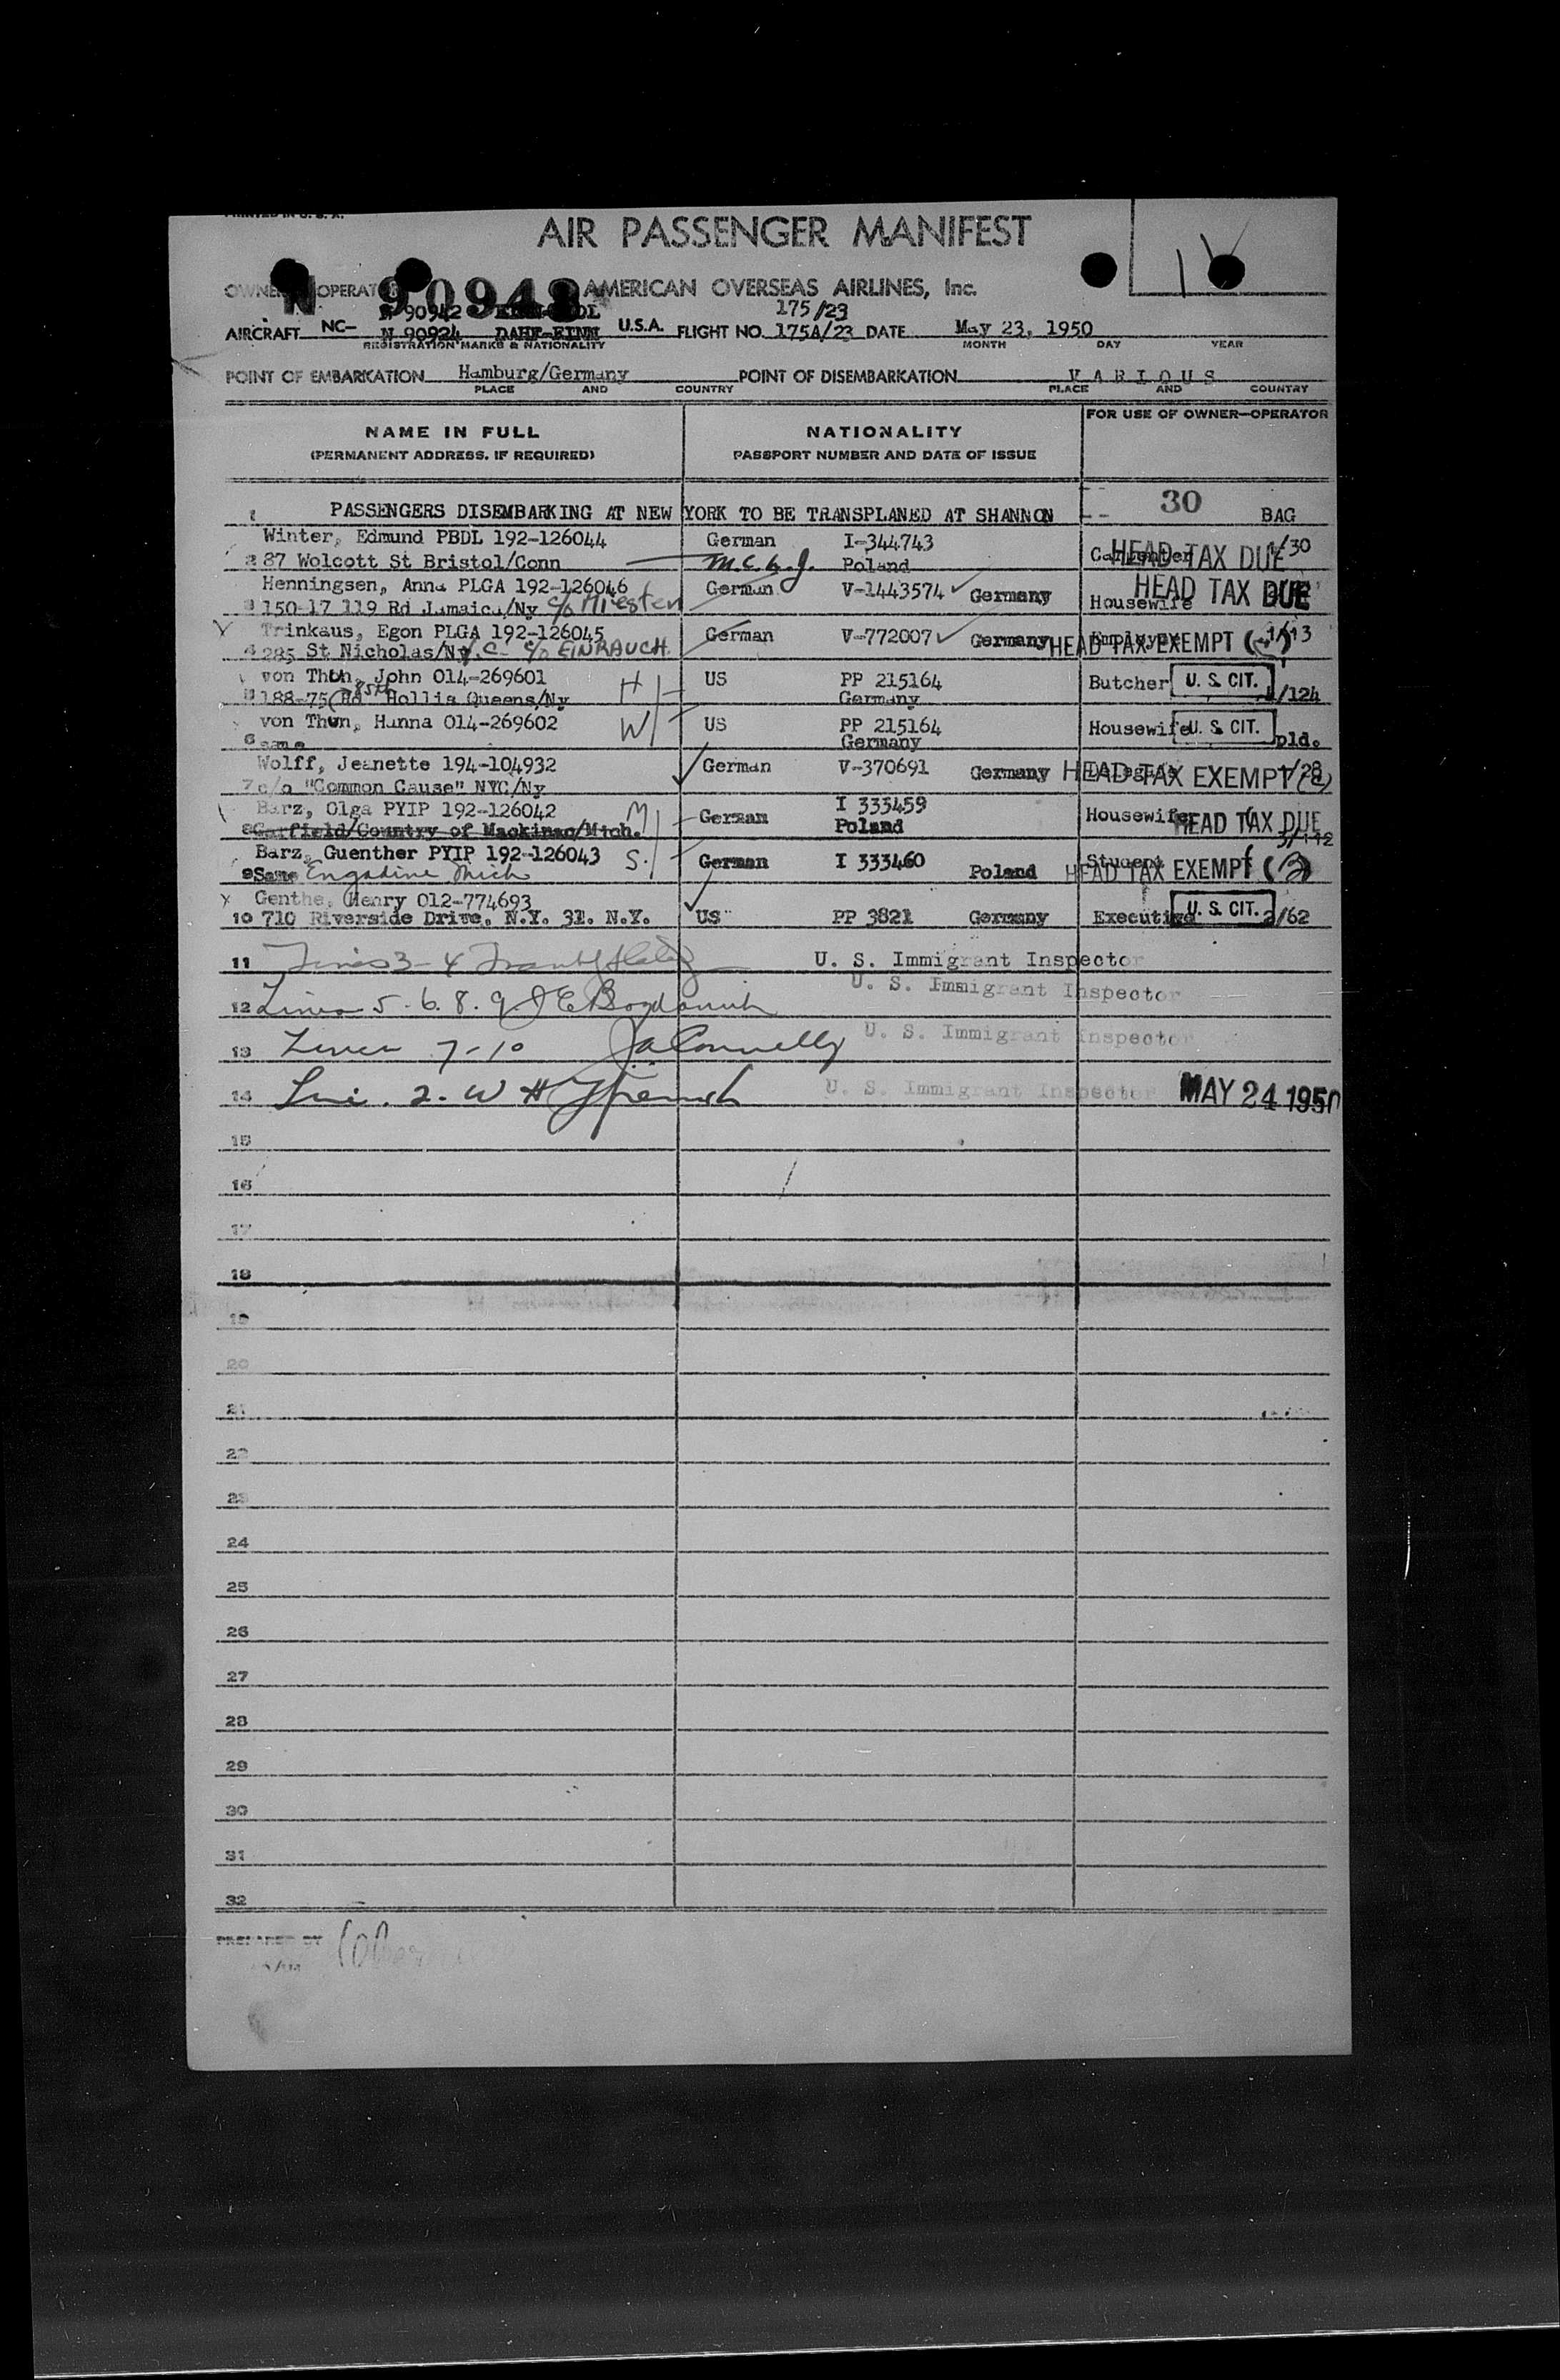 PRINTED IN U. S. A.
AIR PASSENGER MANIFEST
OWNER OPERATOR AMERICAN OVERSEAS AIRLINES, Inc.
N 90943
N 90942 175/23
AIRCRAFT NC- N 90924 U.S.A. FLIGHT NO. 175A/23 DATE May 23, 1950
REGISTRATION MARKS & NATIONALITY MONTH DAY YEAR
POINT OF EMBARKATION Hamburg/Germany POINT OF DISEMBARKATION VARIOUS
PLACE AND COUNTRY PLACE AND COUNTRY
FOR USE OF OWNER—OPERATOR
NAME IN FULL NATIONALITY
(PERMANENT ADDRESS, IF REQUIRED) PASSPORT NUMBER AND DATE OF ISSUE
30
1 PASSENGERS DISEMBARKING AT NEW YORK TO BE TRANSPLANED AT SHANNON BAG
Winter, Edmund PBDL 192-126044 German I-344743
2 87 Wolcott St Bristol/Conn Poland Carpenter HEAD TAX DUE 1/30
Henningsen, Anna PLGA 192-126046 German V-1443574 Germany HEAD TAX DUE
3 150-17 119 Rd Jamaica/Ny c/o Housewife
Trinkaus, Egon PLGA 192-126045 German V-772007 Germany HEAD TAX EXEMPT 1/13
4 285 St Nicholas/Ny.C- c/o EINRAUCH
von Thun, John 014-269601 H US PP 215164 Butcher U. S. CIT.
5 188-75 Rd 85th Hollis Queens/Ny Germany /124
von Thun, Hanna 014-269602 W US PP 215164 Housewife U. S. CIT.
6 same Germany pld.
Wolff, Jeanette 194-104932 German V-370691 Germany HEAD TAX EXEMPT 1/28
7 c/o "Common Cause" NYC/Ny
Barz, Olga PYIP 192-126042 M German I 333459 Housewife HEAD TAX DUE
8 Garfield/Country of Mackinac/Mich. Poland
Barz, Guenther PYIP 192-126043 S. German I 333460 Poland Student HEAD TAX EXEMPT (3)
9 Same Engadine Mich
Genthe, Henry 012-774693
10 710 Riverside Drive, N.Y. 31. N.Y. US PP 3821 Germany Executive U. S. CIT. 2/62
11 Lines 3-4 U. S. Immigrant Inspector
12 Lines 5-6.8.9 U. S. Immigrant Inspector
13 Lines 7-10 JaConnelly U. S. Immigrant Inspector
14 Line. 2- U. S. Immigrant Inspector MAY 24 1950
15
16
17
18
19
20
21
22
23
24
25
26
27
28
29
30
31
32
PREPARED BY